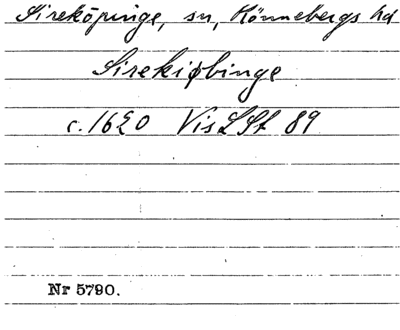 Sireköpinge, sn, Rönnebergs hd
Sirekiøbinge
c. 1620 Vis LSt 89
Nr 5790.